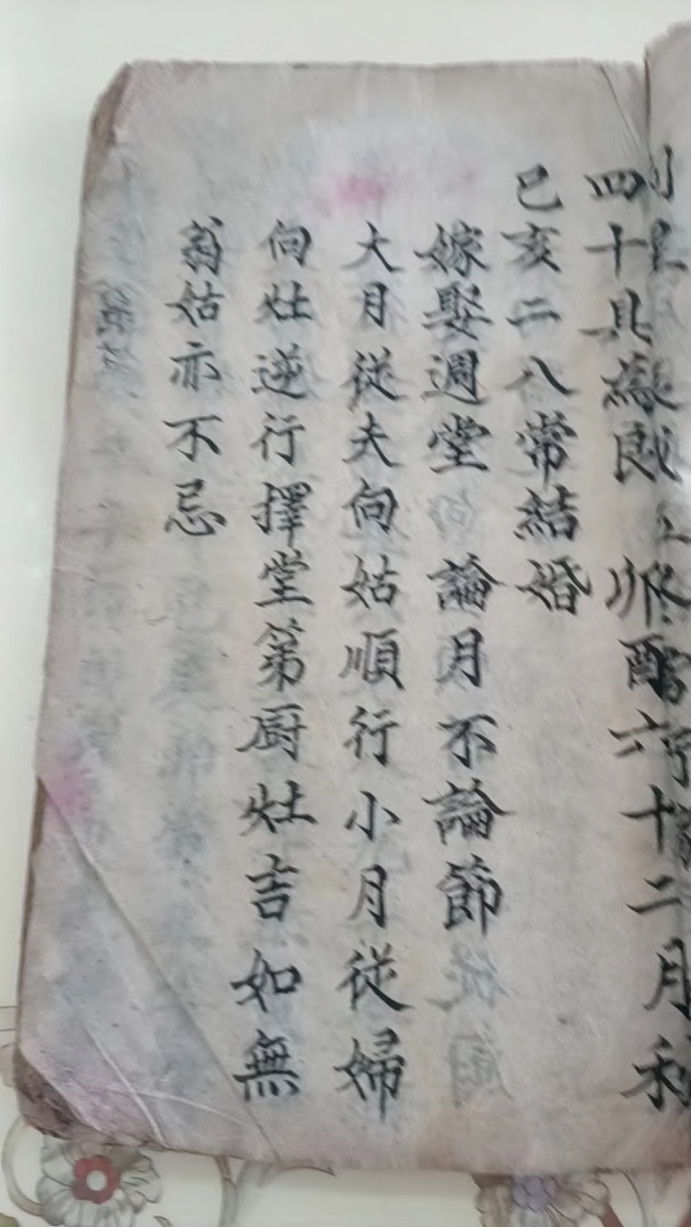 四十 六十二月利
巳亥二八常結婚
嫁娶週堂 論月不論節
大月從夫向姑順行小月從婦
向灶逆行擇堂第厨灶吉如無
翁姑亦不忌